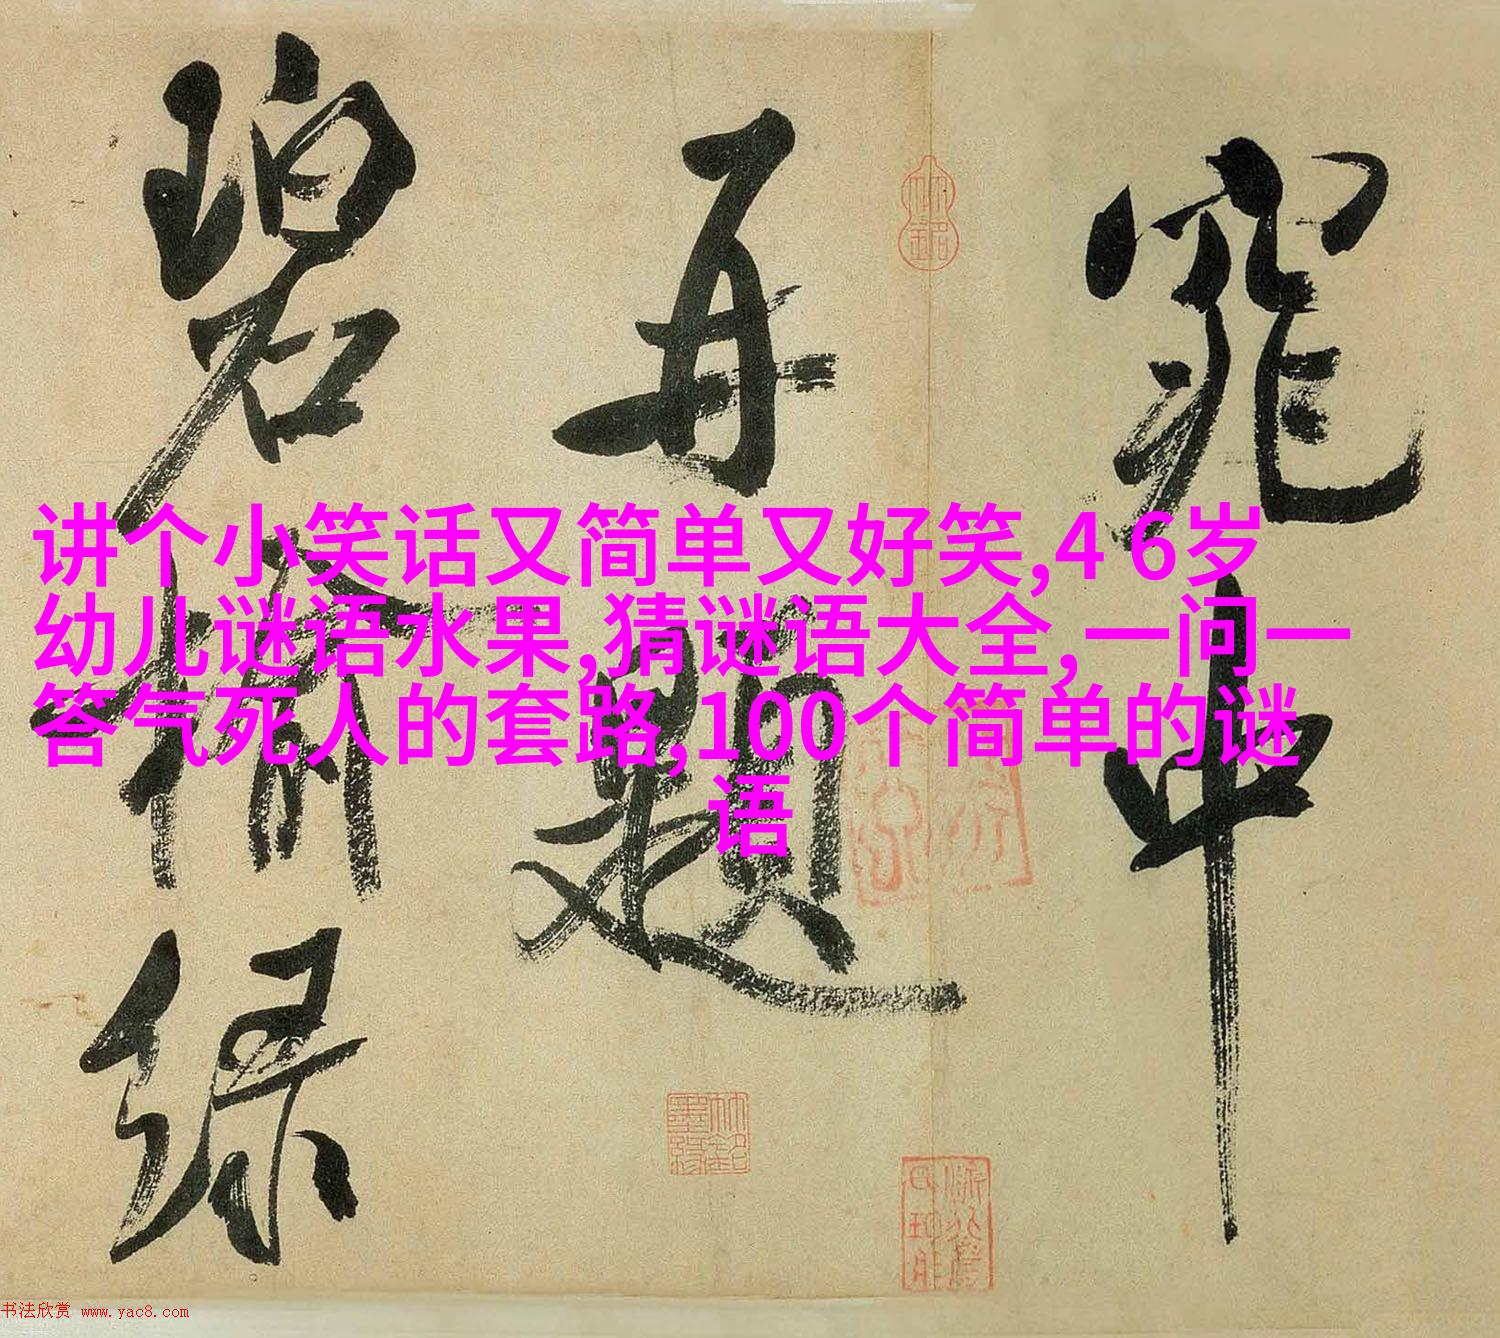 窕中
再题
碧榆绿
讲个小笑话又简单又好笑,4 6岁
幼儿谜语水果,猜谜语大全,一问一
答气死人的套路,100个简单的谜
语
书法欣赏 www.yac8.com